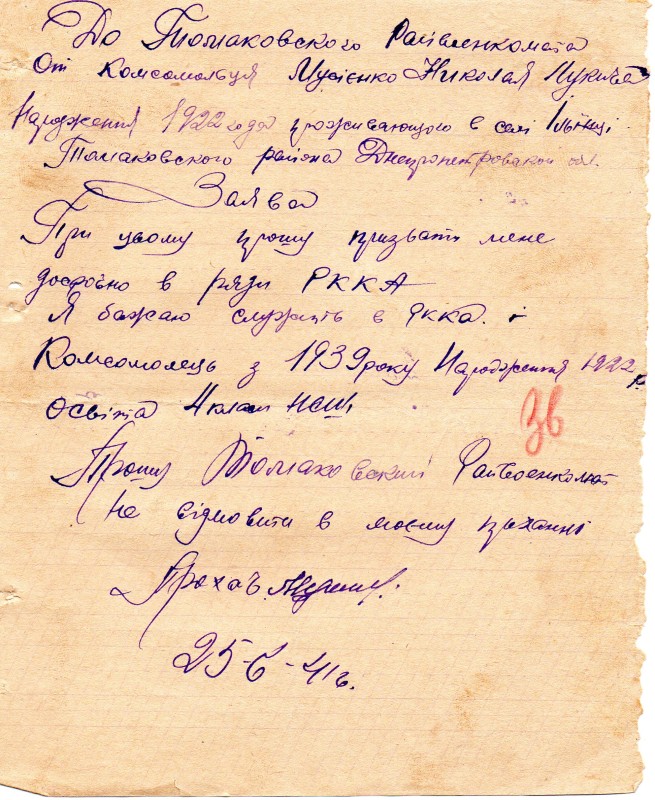 До Томаковского Райвоенкомата
От комсомольця Мусієнко Николая Лукича
Народження 1922 года проживающого в селі
Томаковского района Днепропетровской обл.
Заява
При цьому прошу призвать мене
досрочно в ряди РККА
Я бажаю служить в РККА.
Комсомолець з 1939 року Народження 1922 р.
освіта 4 класи НСШ
Зв
Прошу Томаковский Райвоенкомат
не відмовити в моєму проханні
25-6-41г.